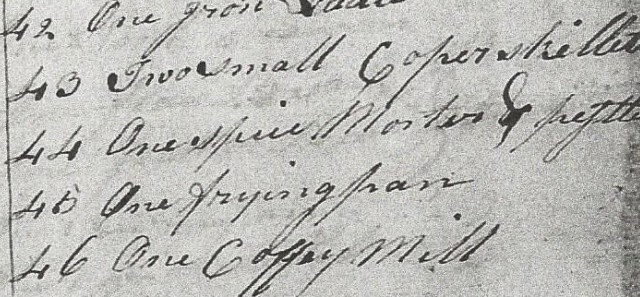 42 One Iron Ladle
43 Two small Coper skillets
44 One spice Morter & pestle
45 One frying pan
46 One Coffey Mill